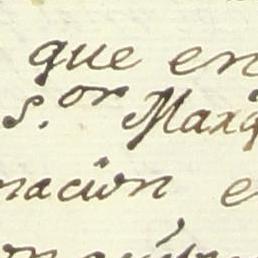 que en
S.or Marq
nacion e